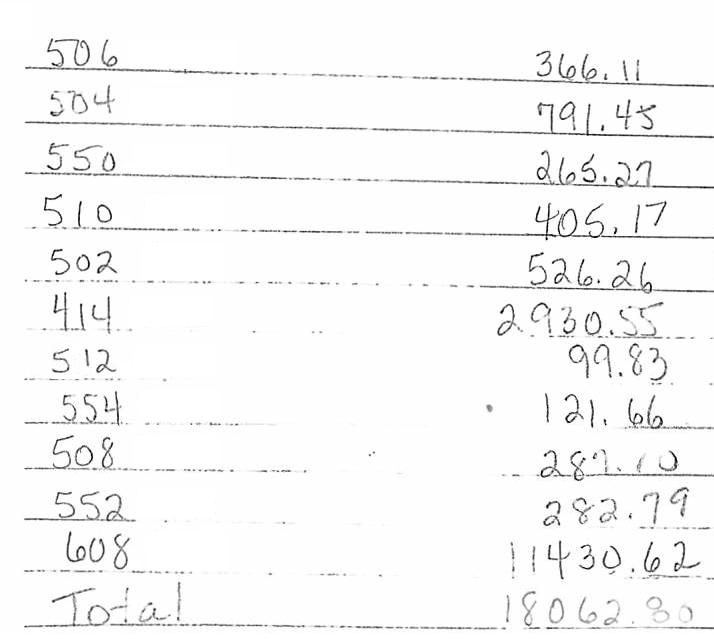 506 366.11
504 791.45
550 265.27
510 405.17
502 526.26
414 2930.55
512 99.83
554 121.66
508
552 282.79
608 11430.62
Total 18062.80